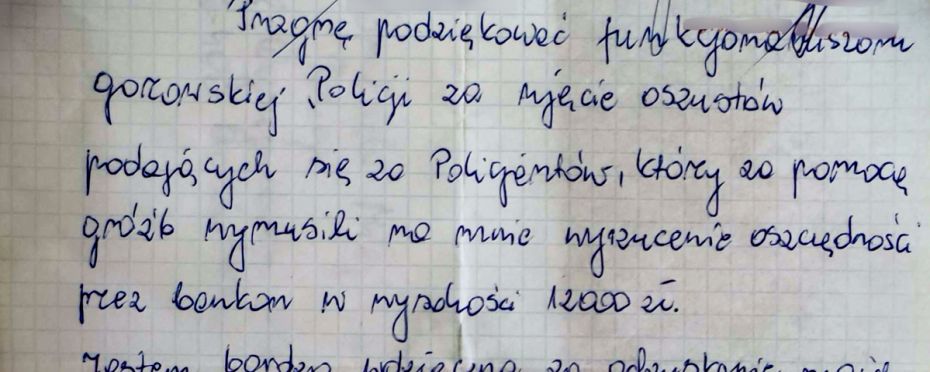 Pragnę podziękować funkcjonariuszom
gorzowskiej Policji za ujęcie oszustów
podających się za Policjantów, którzy za pomocą
gróźb wymusili na mnie wyrzucenie oszczędności
przez balkon w wysokości 12000 zł.
Jestem bardzo wdzięczna za odzyskanie moich